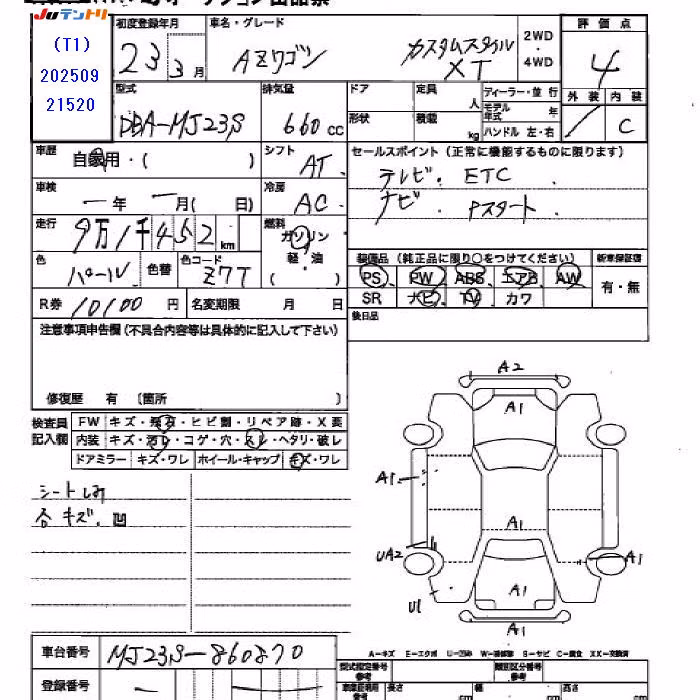 Juテントリ
(T1)
202509
21520
初度登録年月
23 3月
車名・グレード
AZワゴン カスタムスタイル
XT
2WD
・
4WD
評価点
4
外装 内装
C
型式
DBA-MJ23S
排気量
660cc
ドア
定員
人
形状
積載
kg
ディーラー・並行
モデル年式 年
ハンドル 左・右
車歴
自家用・( )
シフト
AT
セールスポイント(正常に機能するものに限ります)
テレビ. ETC
ナビ. Pスタート
車検
一年 一月( 日)
冷房
AC
走行
9万1千452km
燃料
ガソリン
軽・油
色
パール
色替
色コード
Z7T
装備品(純正品に限り○をつけてください)
PS PW ABS エアB AW
SR ナビ TV カワ
新車保証書
有・無
R券 10100円
名変期限 月 日
後日品
注意事項申告欄(不具合内容等は具体的に記入して下さい)
修復歴 有 〔箇所 〕
検査員
記入欄
FW キズ・飛石・ヒビ割・リペア跡・X長
内装 キズ・汚レ・コゲ・穴・スレ・ヘタリ・破レ
ドアミラー キズ・ワレ ホイール・キャップ キズ・ワレ
シートしみ
各キズ. 凹
A2
A1
A1
A1
UA2
A1
U1
A1
A1
車台番号 MJ23S-860870
登録番号 一
A-キズ E-エクボ U-凹み W-補修跡 S-サビ C-腐食 XX-交換済
型式指定番号
参考
類別区分番号
参考
車庫証明用
参考
長さ cm
幅 cm
高 cm